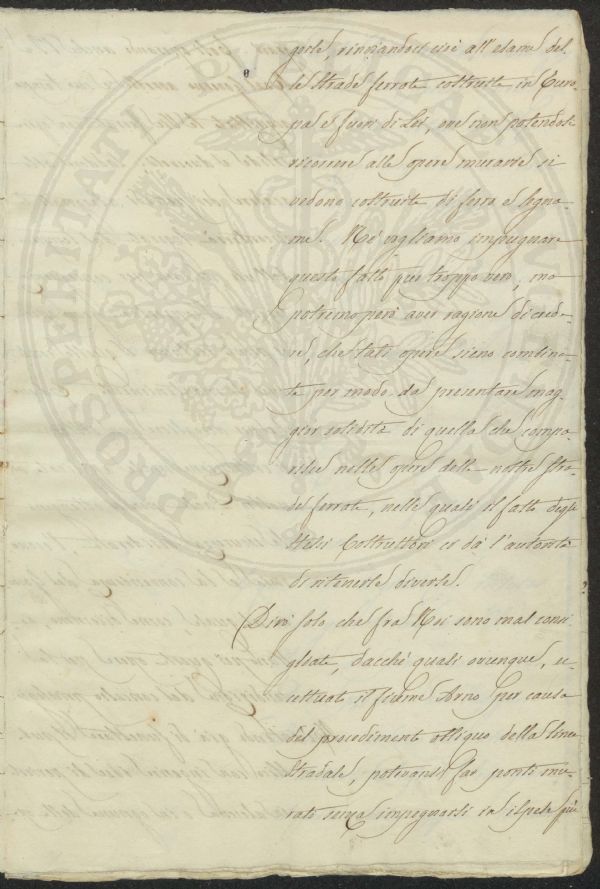 gerle, rinviandoci cioè all'esame del
le Strade ferrate costrutte in Euro
pa e fuori di Lei, ove non potendosi
ricorrere alle opere murarie si
vedono costruite di ferro e legna
me. Nè vogliamo impugnare
questo fatto pur troppo vero, ma
potremo però aver ragione di crede
re, che tali opere sieno combina
te per modo da presentare mag
gior solidità di quella che compa
risce nelle opere delle nostre stra
de ferrate, nelle quali il fatto degli
stessi Costruttori ci dà l'autorità
di ritenerle diverse.
Dirò solo che fra Noi sono mal consi
gliate, dacchè quasi ovunque, ec
cettuato il fiume Arno per causa
del procedimento obliquo della linea
Stradale, potevansi far ponti mu
rati senza impegnarsi in ispese più
PROSPERITATI PUBLICAE